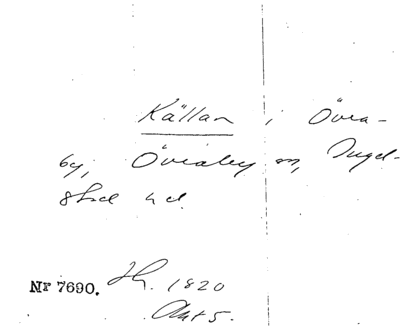 Källan i Övra-
by, Övraby sn, Ingel-
stad hd.
Nr 7690. 1820
Akt 5.